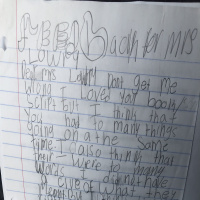 FEEDBack for mrs
Lowry
Dear mrs Lowry Dont get me
wrong I loved your book/
script but I think that
you had to many things
going on at the same
time I also think that
their were to many
words I didint have
a clue of what they